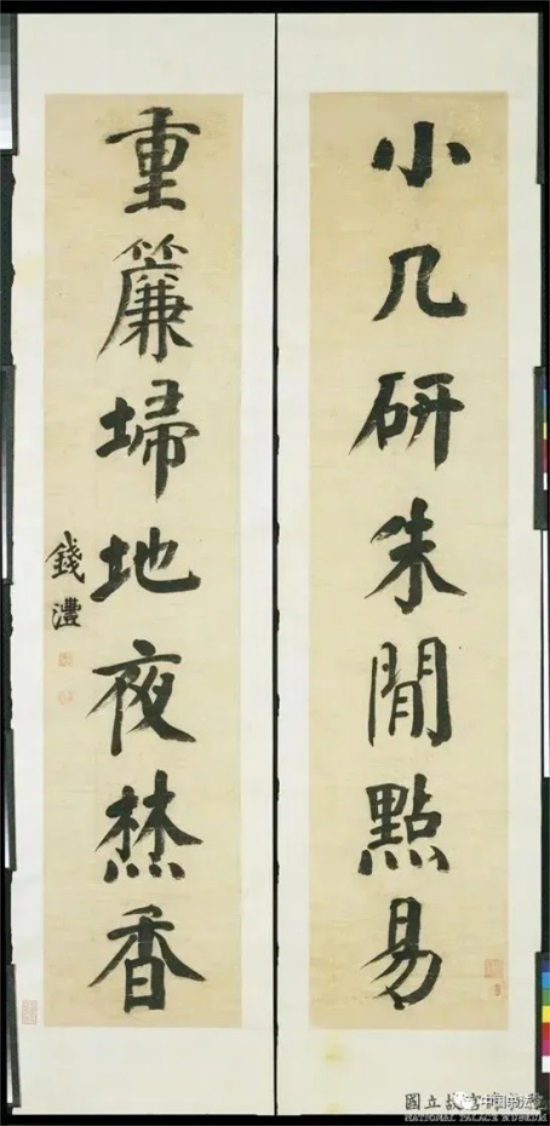 小几研朱閒點易
重簾埽地夜焚香
錢灃
國立故宮
中国书法
NATIONAL PALACE MUSEUM